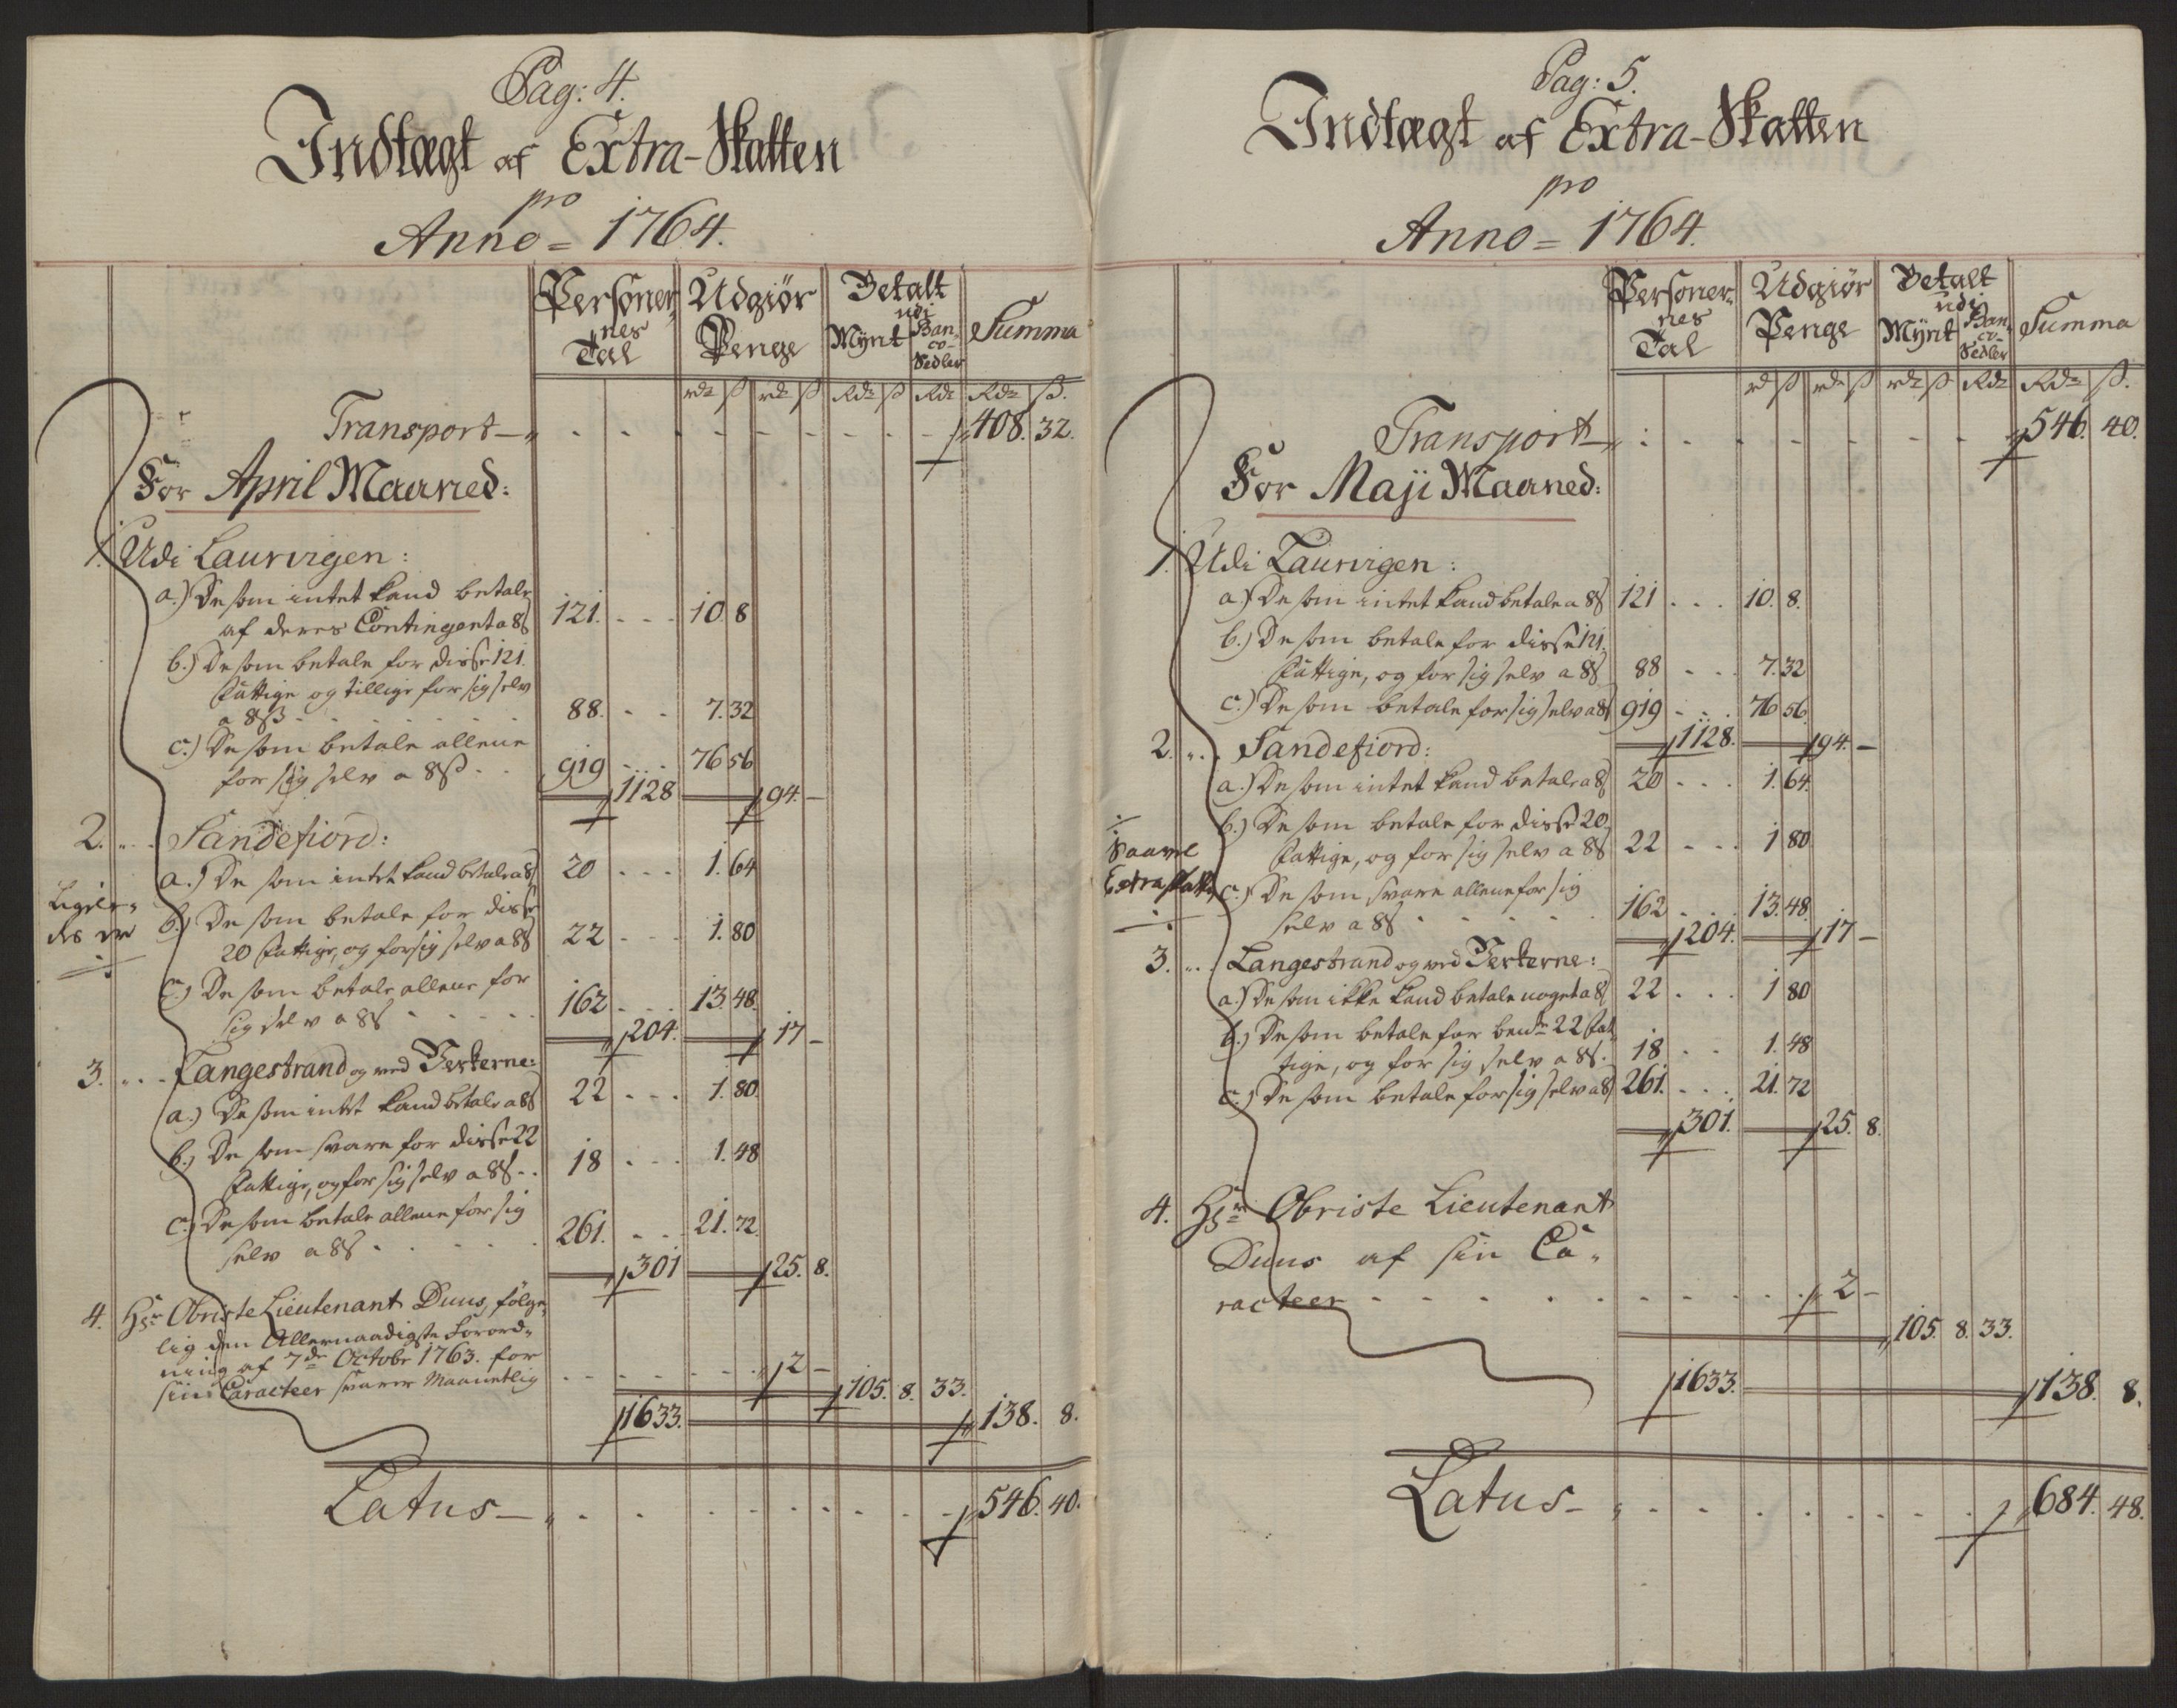 Pag: 4.
Indtægt af Extra-Skatten
pro
Anno = 1764.
Personer„ nes Tal | Udgiør Penge | Betalt udi Mynt | Banco-Sedler | Summa
rd ß rd ß Rd ß Rd Rd ß.
Transport — 408. 32.
For April Maaned:
1. Udi Laurvigen:
a.) De som intet kand betale
af deres Contingent a 8ß 121. 10 8
b.) De som betale for disse 121.
fattige og tillige for sig selv
a 8ß 88. 7. 32
c.) De som betale allene
for sig selv a 8ß 919 76 56
1128 94. —
2. „ Sandefiord:
a.) De som intet kand betale a 8ß 20 1. 64
Ligele„
des er
b.) De som betale for disse
20 fattige, og for sig selv a 8ß 22 1. 80
c.) De som betale allene for
sig selv a 8ß 162 13. 48.
204. 17 —
3. „ Langestrand og ved Jerkerne:
a.) De som intet kand betale a 8ß 22 1. 80.
b.) De som svare for disse 22
fattige, og for sig selv a 8ß 18 1. 48
c.) De som betale allene for sig
selv a 8ß 261. 21. 72.
301 25. 8.
4. Hr Obriste Lieutenant Duus, følge„
lig den Allernaadigste Forord„
ning af 7de Octobr 1763. for
sin Caracteer svarer Maanetlig 2 —
105. 8. 33.
1633. 138. 8.
Latus — 546. 40.
Pag: 5.
Indtægt af Extra-Skatten
pro
Anno = 1764.
Personer„ nes Tal | Udgiør Penge | Betalt udi Mynt | Banco-Sedler | Summa
rd ß rd ß rd ß Rd Rd ß.
Transport — 546. 40.
For Maji Maaned:
1. Udi Laurvigen:
a.) De som intet kand betale a 8ß 121 10. 8.
b.) De som betale for disse 121.
fattige, og for sig selv a 8ß 88 7. 32
c.) De som betale for sig selv a 8ß 919 76 56.
1128. 94. —
2. „ Sandefiord:
a.) De som intet kand betale a 8ß 20 1. 64.
b.) De som betale for disse 20
fattige, og for sig selv a 8ß 22 1 80
Saavel
Extraskatt
c.) De som svare allene for sig
selv a 8ß 162 13. 48.
204. 17 —
3. „ Langestrand og ved Jerkerne:
a.) De som ikke kand betale noget a 8ß 22 1 80
b.) De som betale for bemte 22 fat„
tige, og for sig selv a 8ß. 18 1. 48
c.) De som betale for sig selv a 8ß 261. 21. 72
301. 25. 8.
4. Hr Obriste Lieutenant
Duus af sin Ca„
racteer 2 —
105. 8. 33.
1633. 138. 8.
Latus — 684. 48.